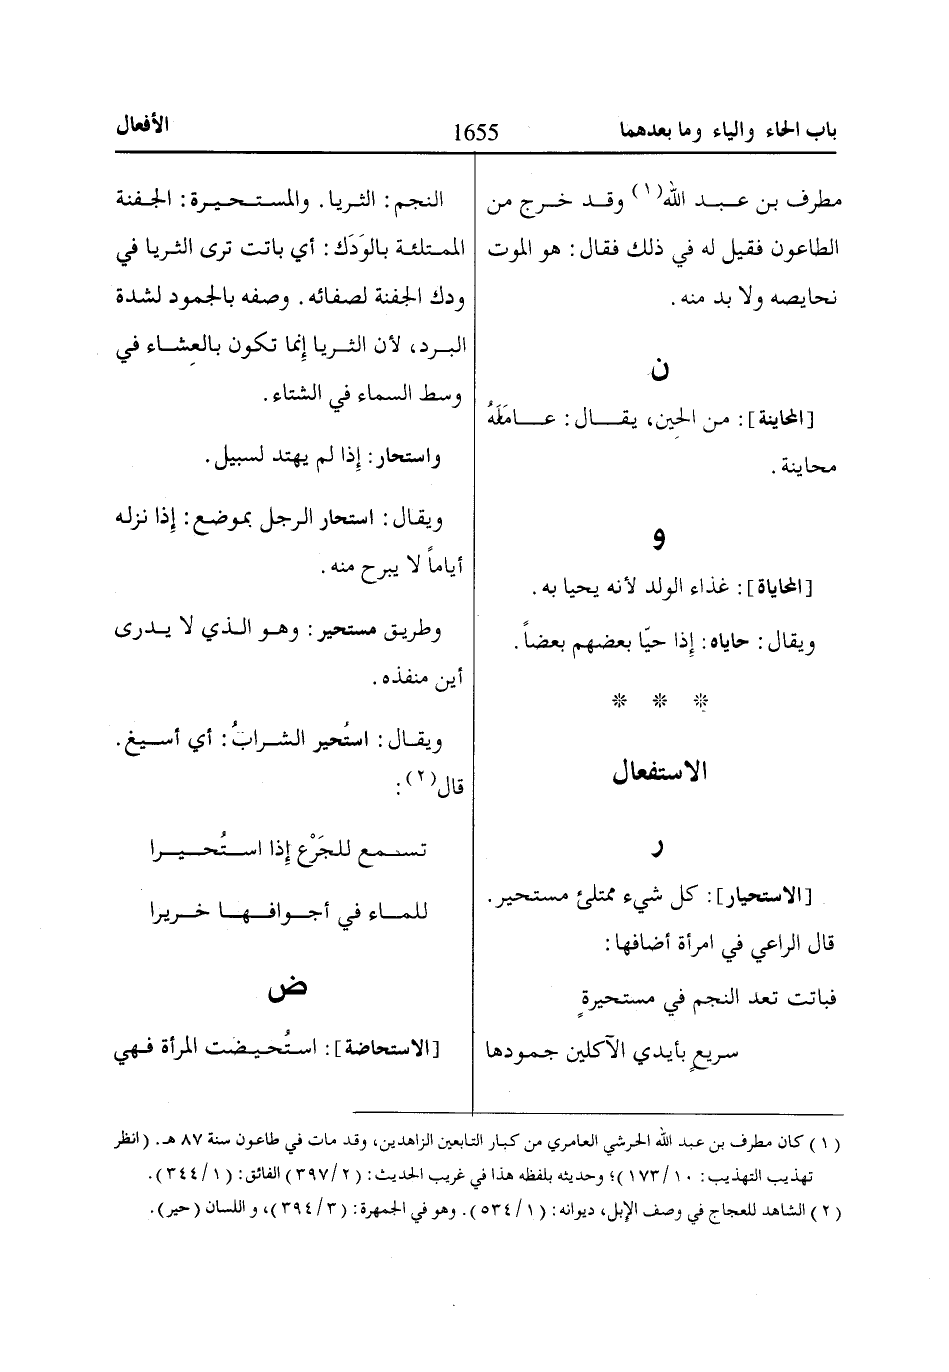 باب الحاء والياء وما بعدهما
1655
الأفعال
مطرف بن عبد الله(١) وقد خرج من
الطاعون فقيل له في ذلك فقال: هو الموت
نحايصه ولا بد منه.
ن
[المحاينة]: من الحِين، يقال: عامَلَهُ
محاينة.
و
[المحاياة]: غذاء الولد لأنه يحيا به.
ويقال: حاياه: إذا حيّا بعضهم بعضاً.
* * *
الاستفعال
ر
[الاستحيار]: كل شيء ممتلئ مستحير.
قال الراعي في امرأة أضافها:
فباتت تعد النجم في مستحيرةٍ
سريعٍ بأيدي الآكلين جمودها
النجم: الثريا. والمستحيرة: الجفنة
الممتلئة بالوَدَك: أي باتت ترى الثريا في
ودك الجفنة لصفائه. وصفه بالجمود لشدة
البرد، لأن الثريا إنما تكون بالعِشاء في
وسط السماء في الشتاء.
واستحار: إذا لم يهتد لسبيل.
ويقال: استحار الرجل بموضع: إذا نزله
أياماً لا يبرح منه.
وطريق مستحير: وهو الذي لا يدرى
أين منفذه.
ويقال: استُحير الشرابُ: أي أسيغ.
قال(٢):
تسمع للجَرْعِ إذا استُحيرا
للماء في أجوافها خريرا
ض
[الاستحاضة]: استُحيضت المرأة فهي
(١) كان مطرف بن عبد الله الحرشي العامري من كبار التابعين الزاهدين، وقد مات في طاعون سنة ٨٧ هـ. (انظر
تهذيب التهذيب: ١٠/١٧٣)؛ وحديثه بلفظه هذا في غريب الحديث: (٢/٣٩٧) الفائق: (١/٣٤٤).
(٢) الشاهد للعجاج في وصف الإبل، ديوانه: (١/٥٣٤). وهو في الجمهرة: (٣/٣٩٤)، واللسان (حير).